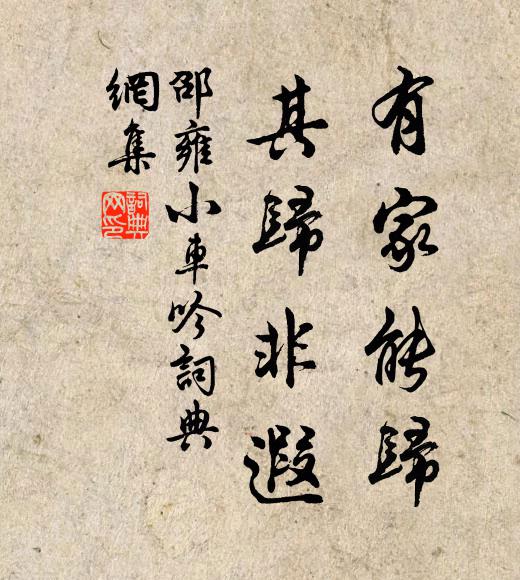 有家能歸
其歸非遐
邵雍小車吟詞典
網集
詞典
网印